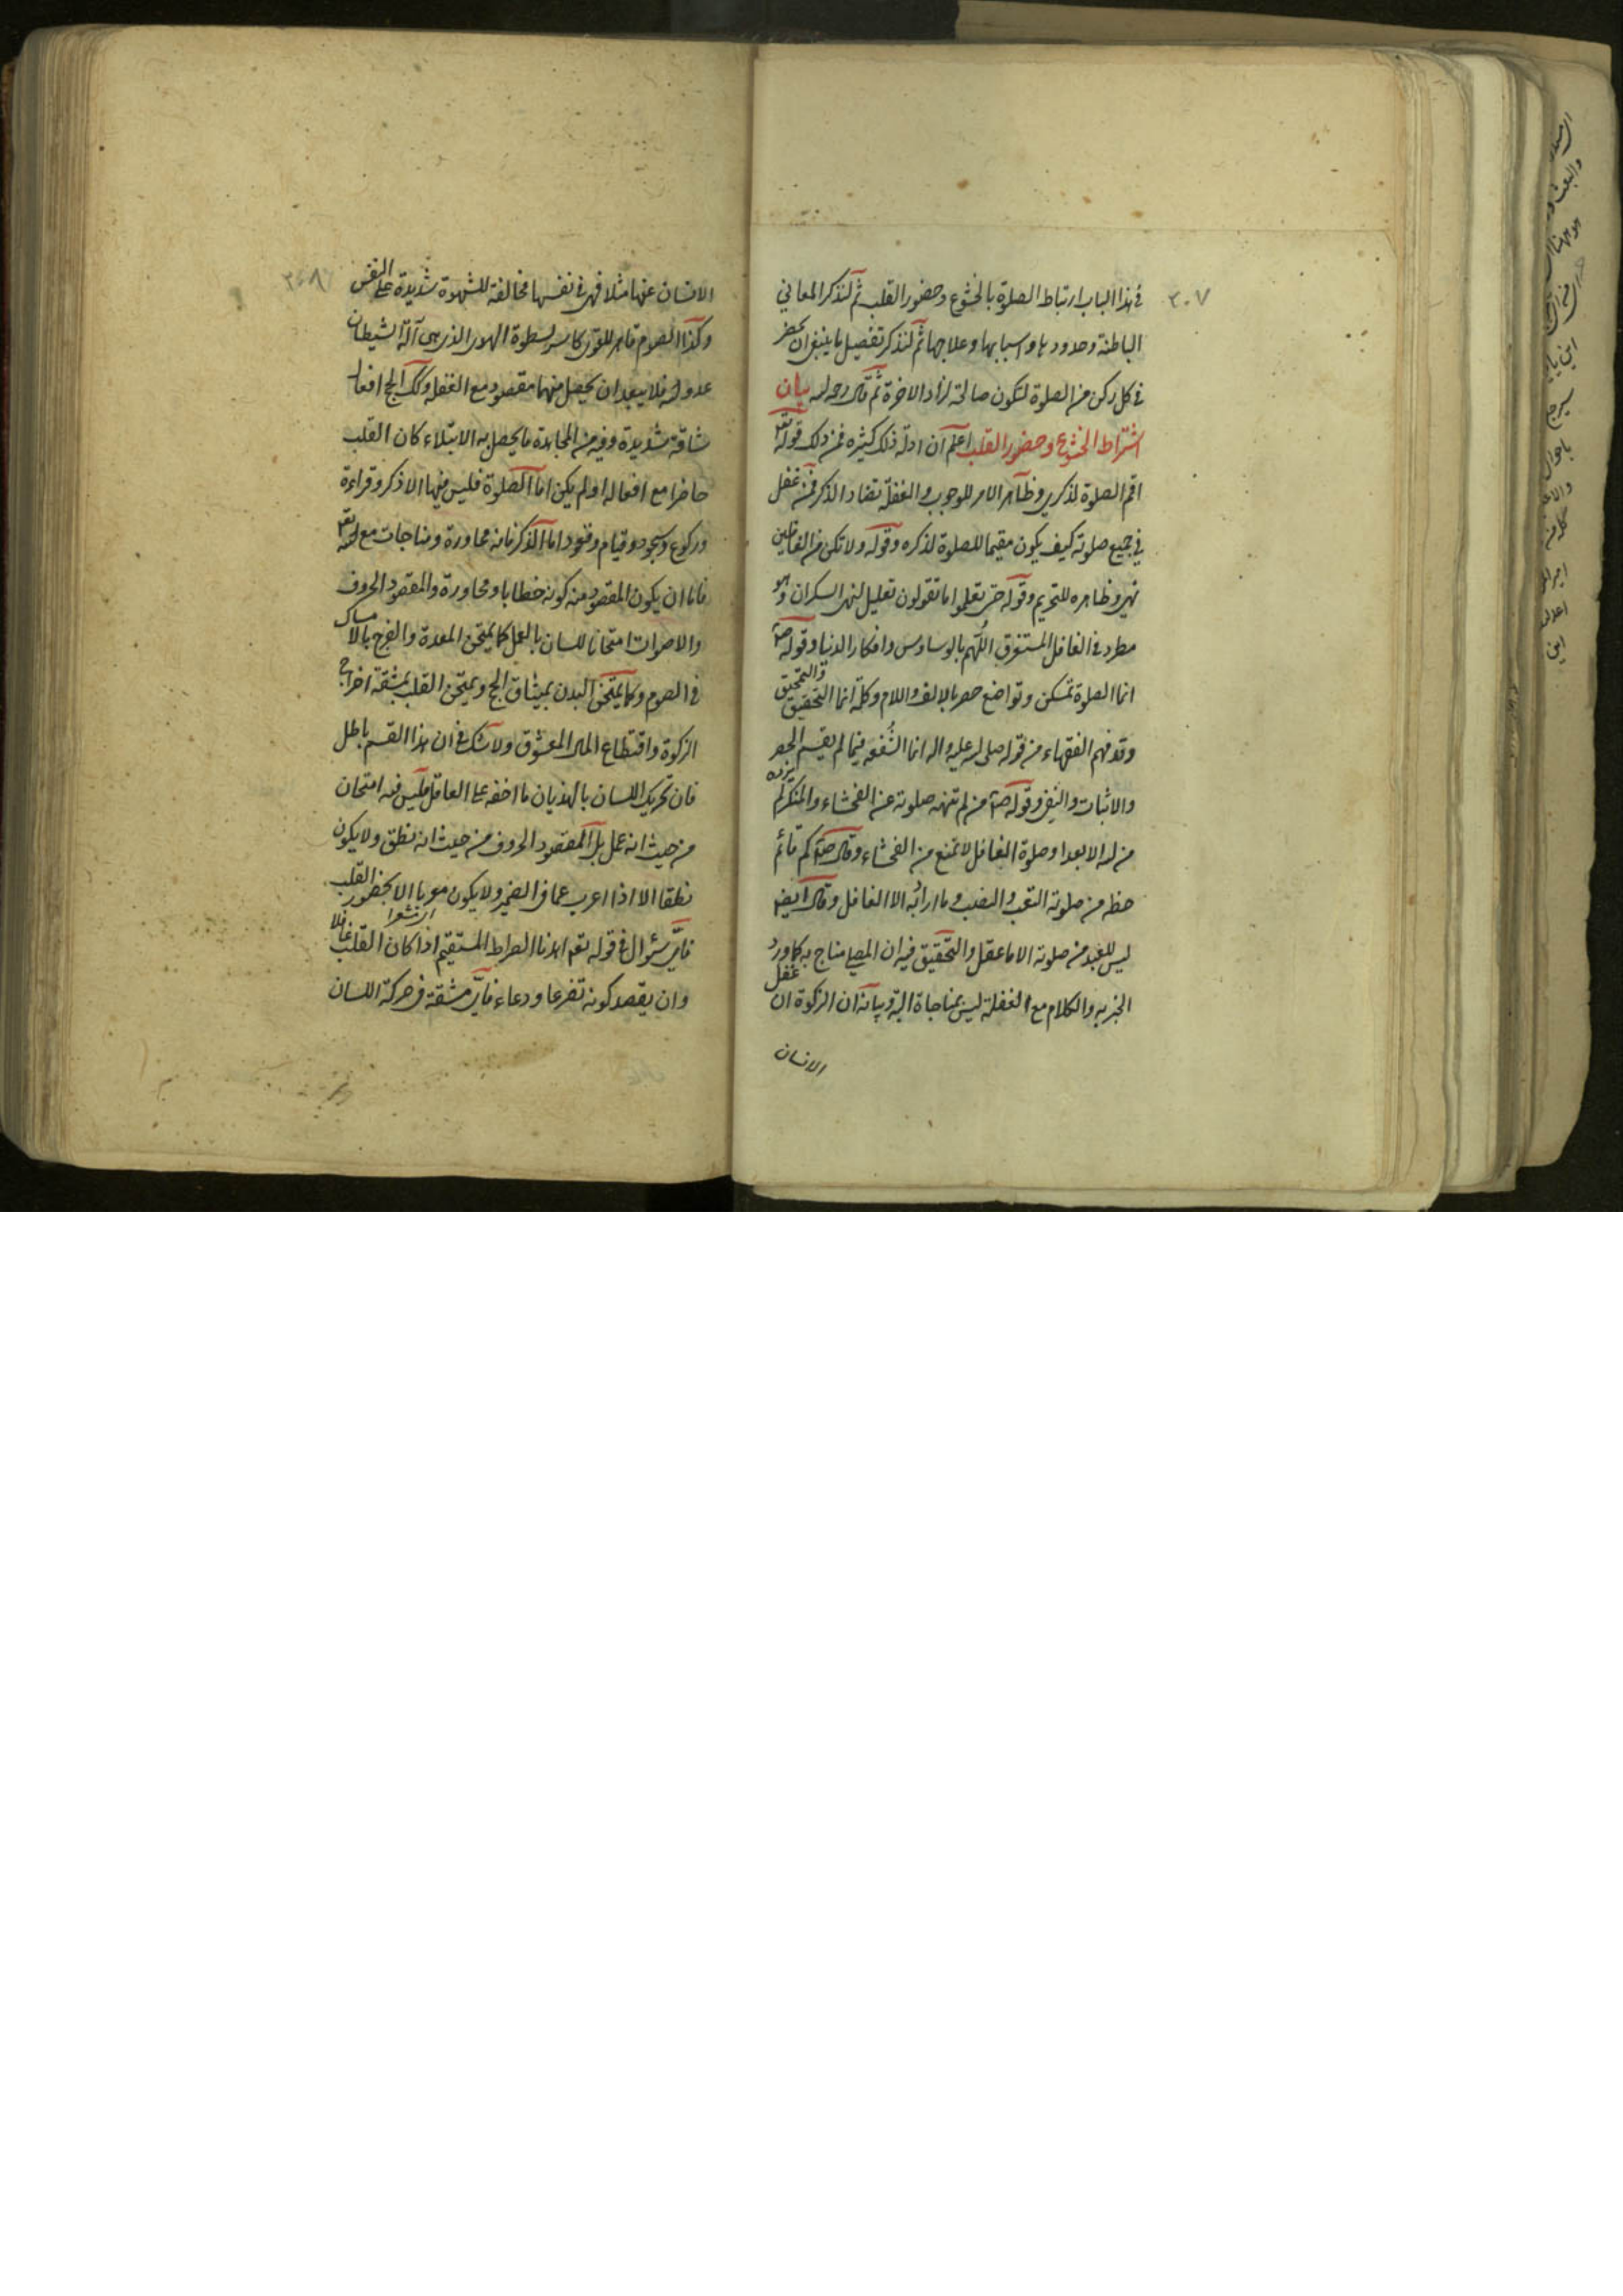 ٣٠٧
في هذا الباب ارتباط الصلوة بالخشوع وحضور القلب ثم لنذكر المعاني
الباطنة وحدودها واسبابها وعلاجها ثم لنذكر تفصيل ما ينبغي ان يحضر
في كل ركن من الصلوة لتكون صالحة لزاد الاخرة ثم قال رحمه الله بيان
اشتراط الخشوع وحضور القلب اعلم ان ادلة ذلك كثيره فمن ذلك قوله تع
اقم الصلوة لذكري وظاهر الامر للوجوب والغفلة تضاد الذكر فمن غفل
في جميع صلوته كيف يكون مقيما للصلوة لذكره وقوله ولا تكن من الغافلين
نهي وظاهره للتحريم وقوله حتى تعلموا ما تقولون تعليل لنهي السكران وهو
مطرد في الغافل المستغرق اللهم بالوساوس وافكار الدنيا وقوله ص
انما الصلوة تمسكن وتواضع حصر بالالف واللام وكلمة انما التحقيق والتمحيق
وقد فهم الفقهاء من قوله صلى الله عليه واله انما الشفعه فيما لم يقسم الحصر
والاثبات والنفي وقوله ص من لم تنهه صلوته عن الفحشاء والمنكر لم يزده
من الله الا بعدا وصلوة الغافل لا تمنع من الفحشاء وقال ص كم قائم
حظه من صلوته التعب والنصب وما اراد به الا الغافل وقال ايضا
ليس للعبد من صلوته الا ما عقل والتحقيق فيه ان المصلي مناج ربه كما ورد
الخبر به والكلام مع الغفلة ليس بمناجاة البتة وبيانه ان الزكوة ان غفل
الانسان
٣٠٨
الانسان عنها مثلا فهي في نفسها مخالفة للشهوة شديدة على النفس
وكذا الصوم قاهر للقوى كاسر لسطوة الهوى الذي هي آلة الشيطان
عدو الله فلا يبعد ان يحصل منهما مقصود مع الغفلة وكذلك الحج افعاله
شاقة شديدة وفيه من المجاهدة ما يحصل به الابتلاء كان القلب
حاضرا مع افعاله او لم يكن اما الصلوة فليس فيها الا ذكر وقراءة
وركوع وسجود وقيام وقعود اما الذكر فانه محاورة ومناجات مع الله تع
فاما ان يكون المقصود منه كونه خطابا ومحاورة والمقصود الحروف
والاصوات امتحانا للسان بالعمل كما يمتحن المعدة والفرج بالامساك
في الصوم وكما يمتحن البدن بميثاق الحج ويمتحن القلب بمشقة اخراج
الزكوة واقتطاع المال المعشوق ولا شك في ان هذا القسم باطل
فان تحريك اللسان بالهذيان ما اخفه على الغافل فليس فيه امتحان
من حيث انه عمل بل المقصود الحروف من حيث انه نطق ولا يكون
نطقا الا اذا اعرب عما في الضمير ولا يكون معربا الا بحضور القلب
فاي سؤال في قوله تع اهدنا الصراط المستقيم اذا كان القلب غافلا
وان يقصد كونه تضرعا ودعاء فاي مشقة في حركة اللسان